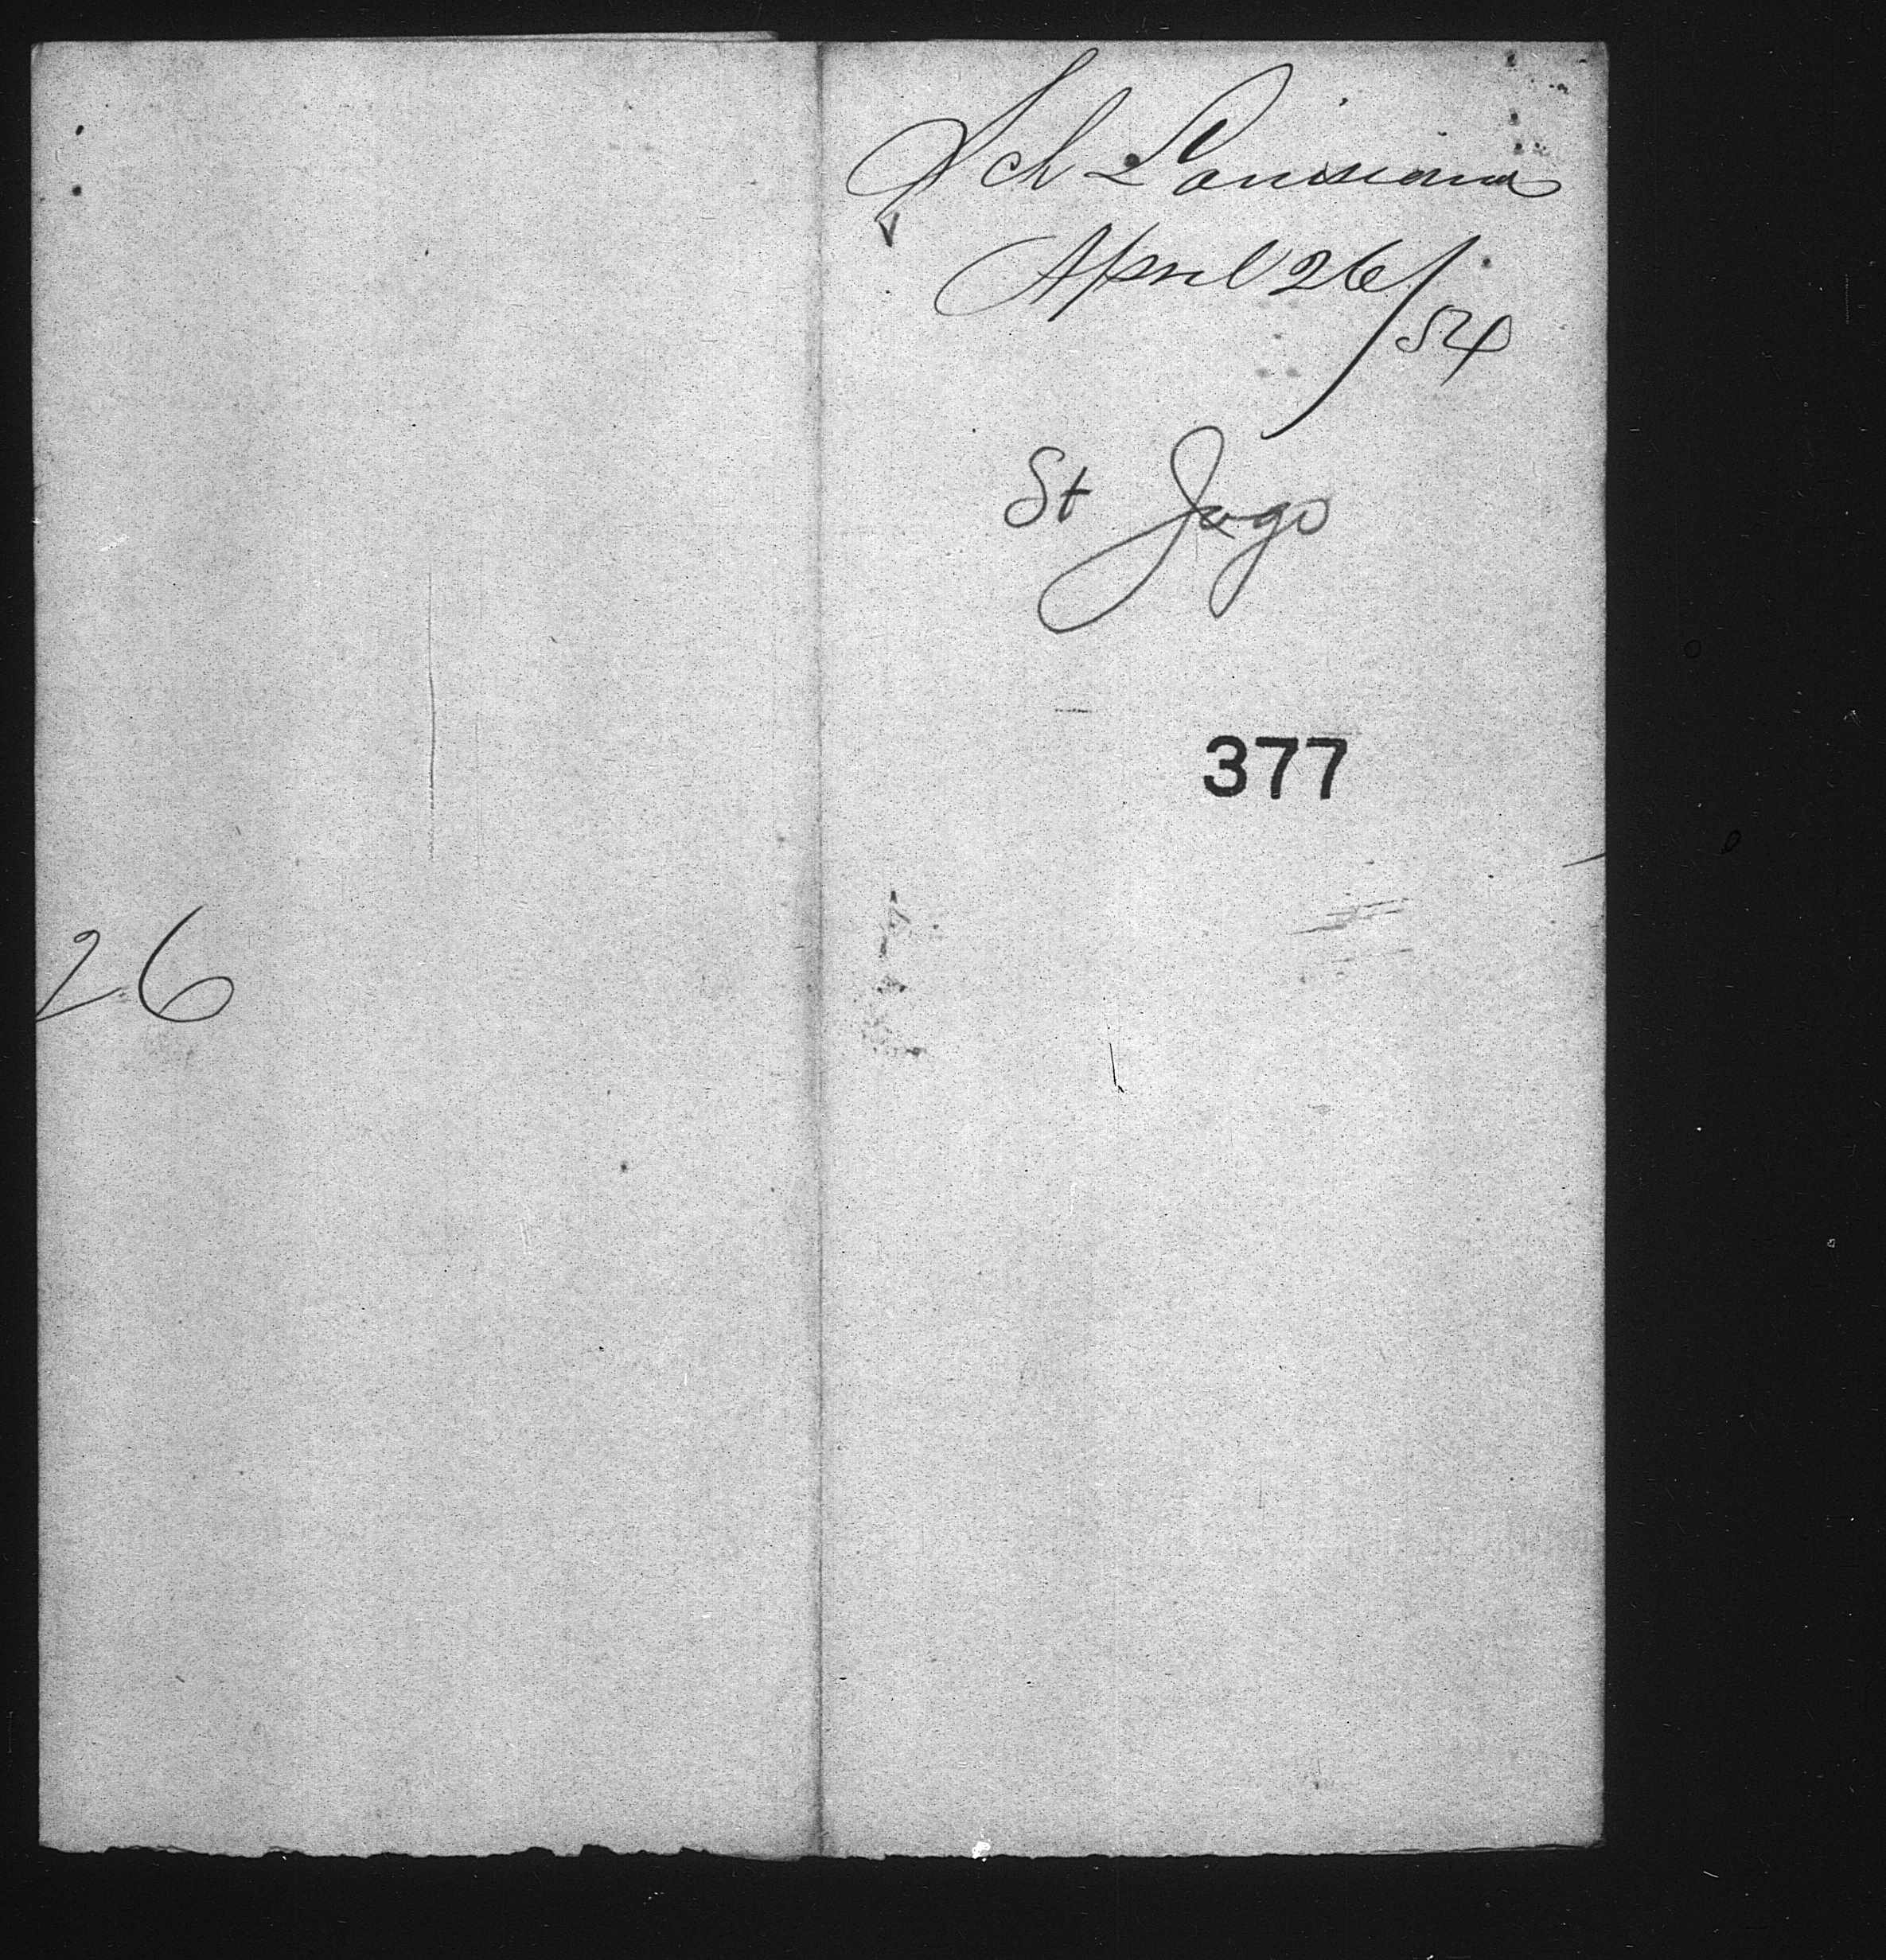 Sch Louisiana
April 26/54
St Jago
377
26